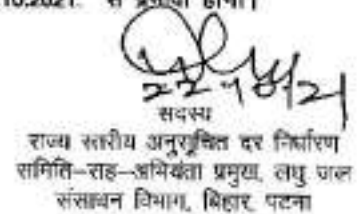 10.2021. से प्रभावी होगा।
सदस्य
राज्य स्तरीय अनुसूचित दर निर्धारण
समिति-सह-अभियंता प्रमुख, लघु जल
संसाधन विभाग, बिहार, पटना